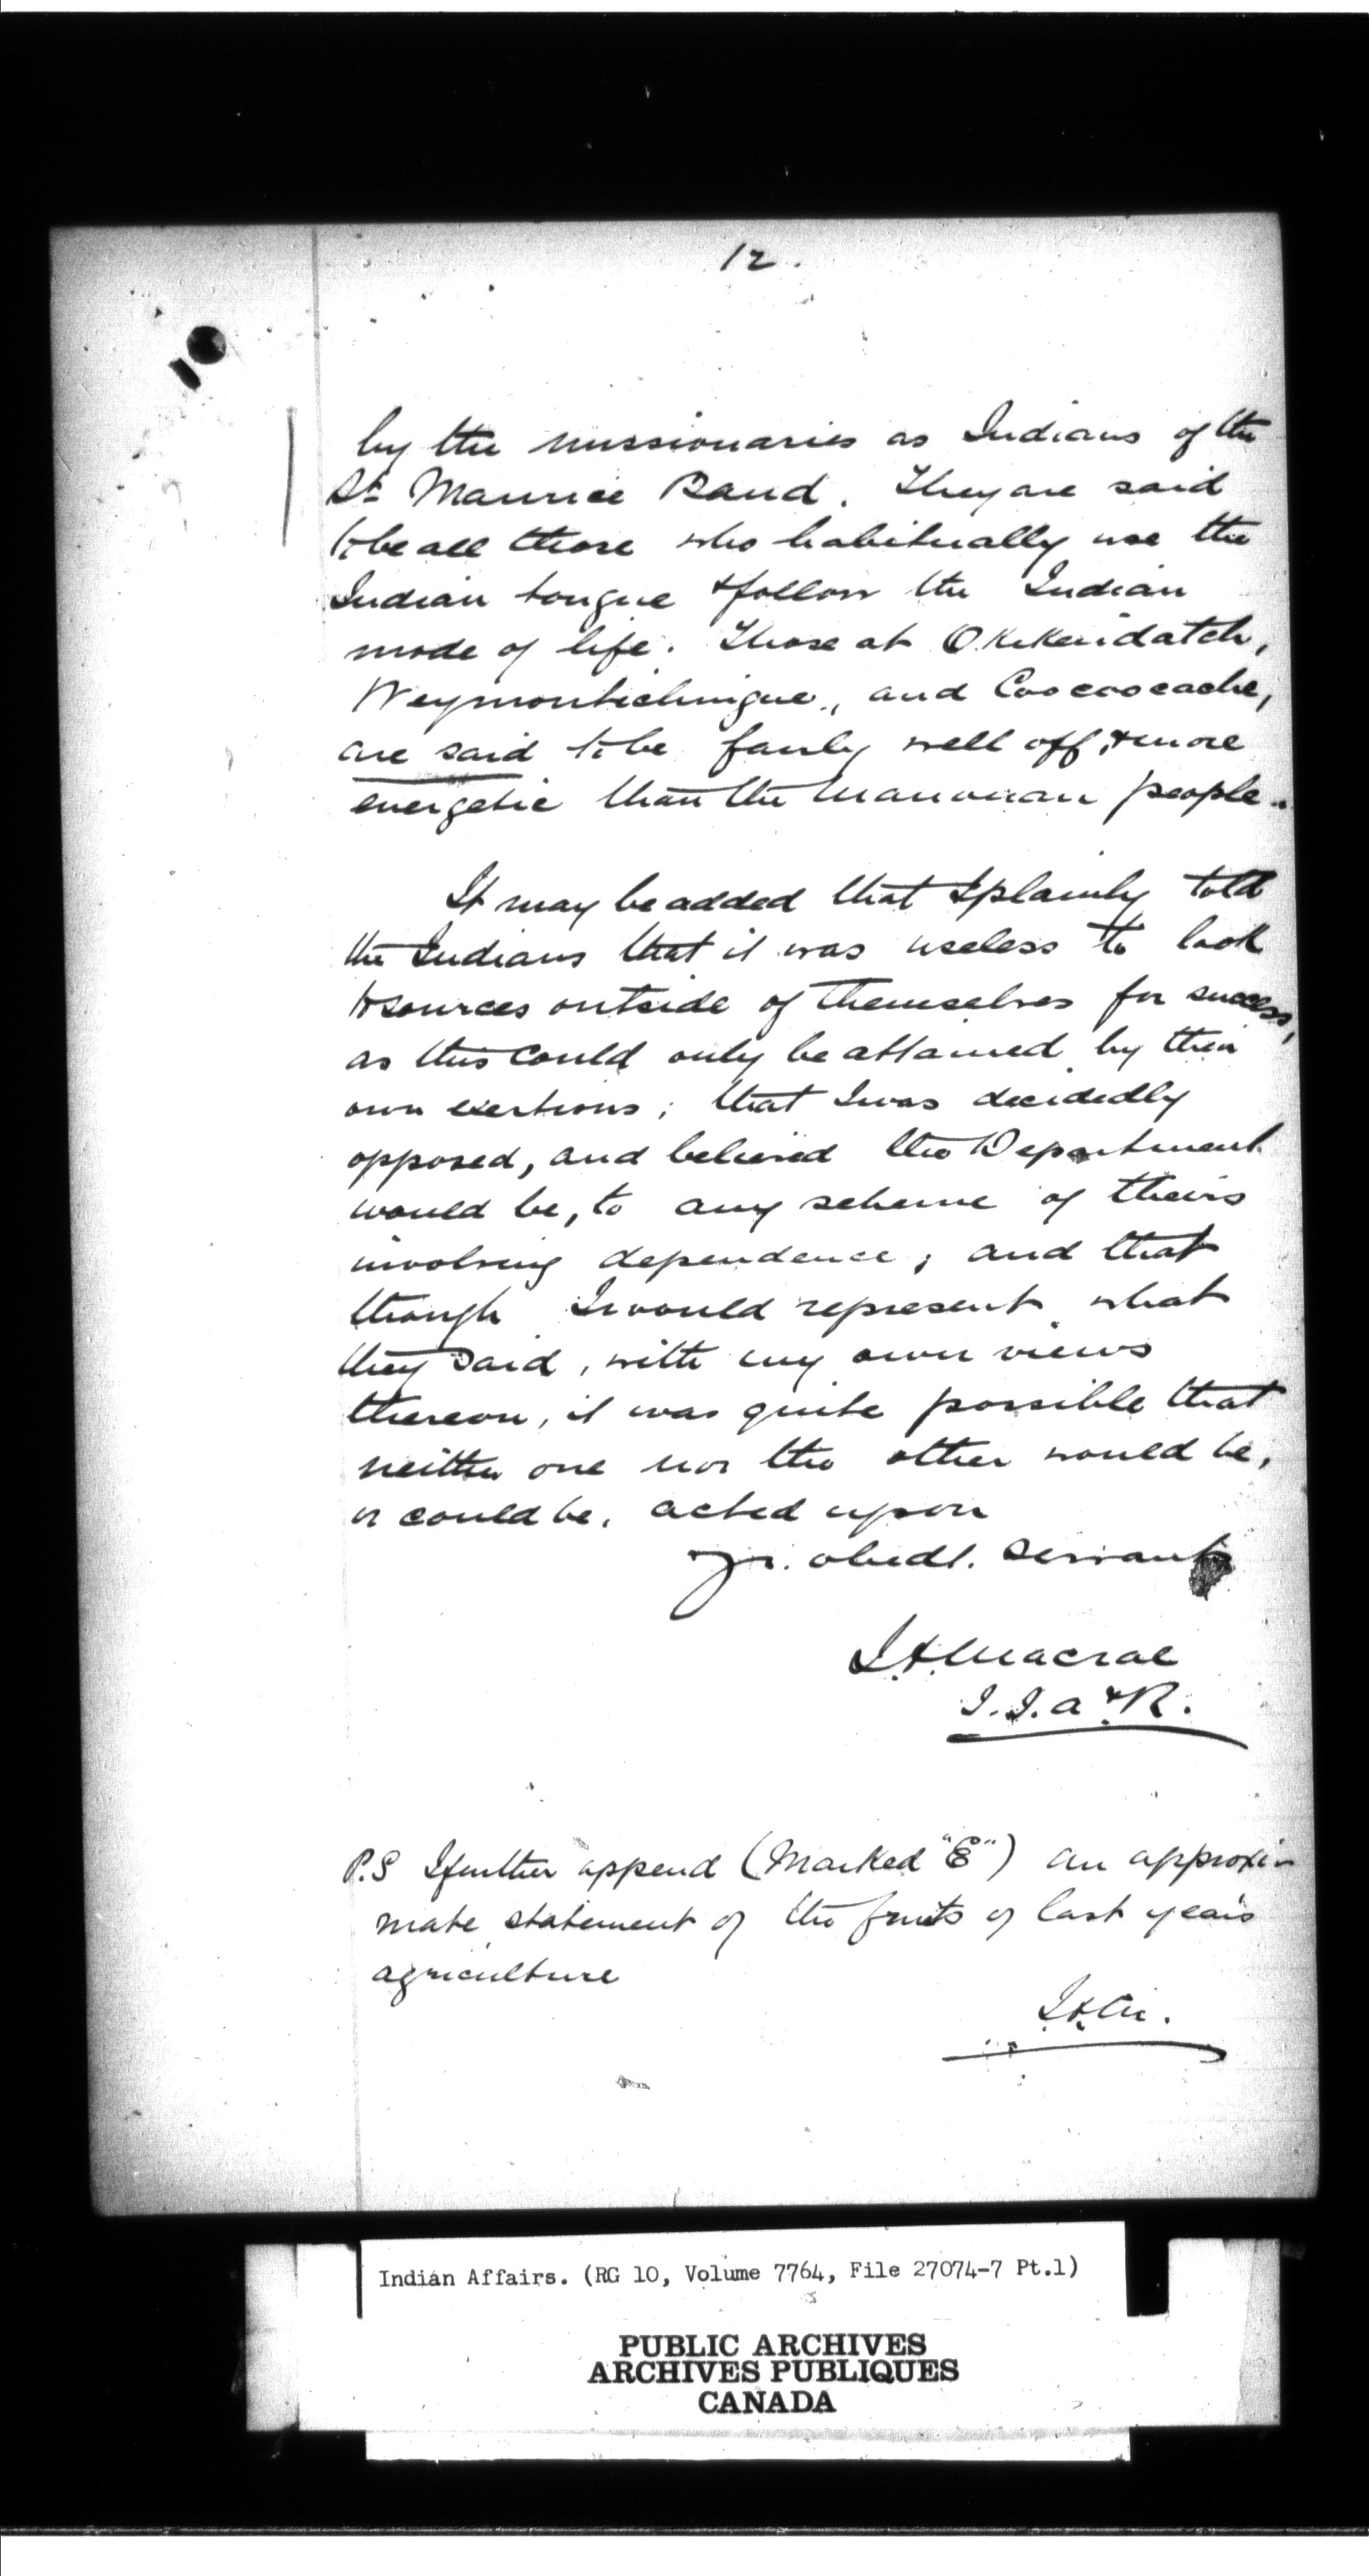 12.
by the missionaries as Indians of the
St Maurice Band. They are said
to be all those who habitually use the
Indian tongue & follow the Indian
mode of life. Those at Okikendatch,
Weymontichingue, and Coocoocache,
are said to be fairly well off, & more
energetic than the Manouan people.
It may be added that I plainly told
the Indians that it was useless to look
to sources outside of themselves for success,
as this could only be attained by their
own exertions; that I was decidedly
opposed, and believed the Department
would be, to any scheme of theirs
involving dependence; and that
though I would represent what
they said, with my own views
thereon, it was quite possible that
neither one nor the other would be,
or could be, acted upon
Yr. obedt. servant
J.A. Macrae
I.I.A & R.
P.S I further append (Marked "E") an approxi-
mate statement of the fruits of last year's
agriculture
J.A.M.
Indian Affairs. (RG 10, Volume 7764, File 27074-7 Pt.1)
PUBLIC ARCHIVES
ARCHIVES PUBLIQUES
CANADA